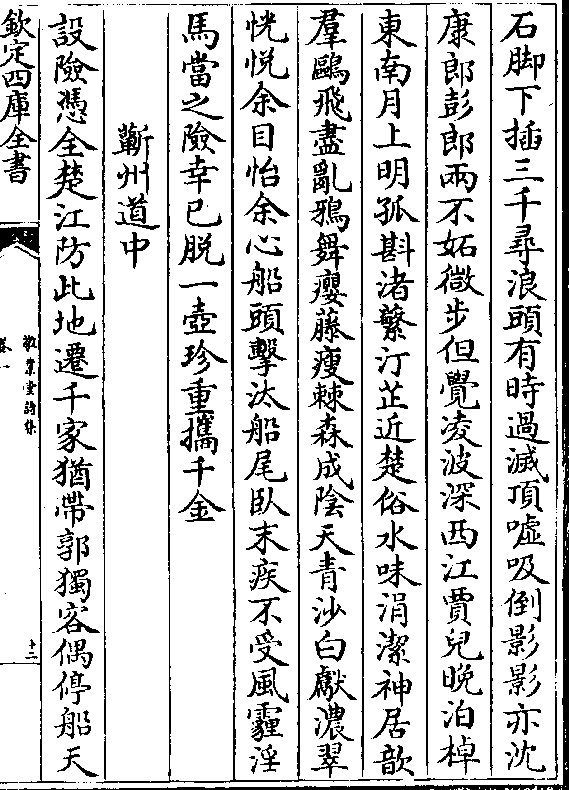 石脚下插三千尋浪頭有時過滅頂噓吸倒影影亦沈
康郎彭郎兩不妬㣲步但覺凌波深西江賈兒晚泊棹
東南月上明孤斟渚蘩汀芷近楚俗水味涓潔神居歆
羣鷗飛盡亂鴉舞癭藤瘦棘森成陰天青沙白獻濃翠
恍悅余目怡余心船頭擊汰船尾臥末疾不受風霾淫
馬當之險幸已脱一壺珍重攜千金
蘄州道中
設險憑全楚江防此地遷千家猶帶郭獨客偶停船天
欽定四庫全書
敬業堂詩集
卷一
十二